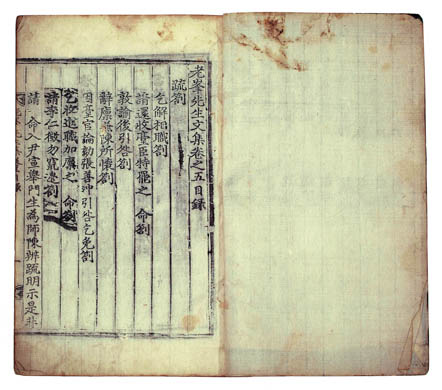 老峯先生文集卷之五目錄
疏劄
乞解相職劄
請還收臺臣特遞之 命劄
敦諭後引咎劄
辭廩兼陳所懷劄
因臺官論劾張善冲引咎乞免劄
乞收還職加廩之 命劄
請李仁徵勿竄邊劄
請 命入尹宣擧門生為師陳辨疏明示是非